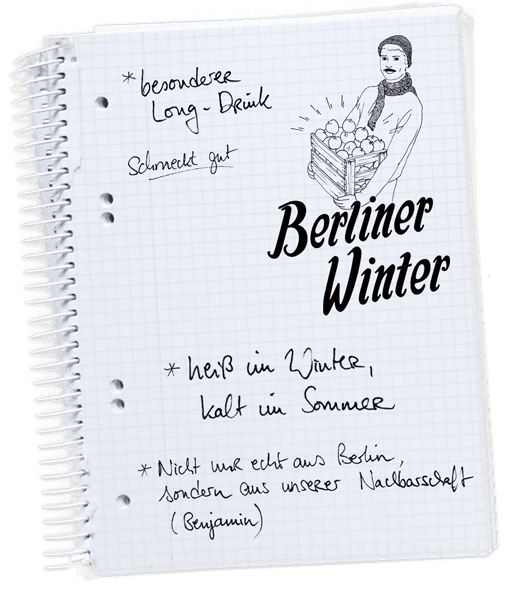 * besonderer
Long-Drink
Schmeckt gut
Berliner
Winter
* heiß im Winter,
kalt im Sommer
* Nicht nur echt aus Berlin,
sondern aus unserer Nachbarschaft
(Benjamin)